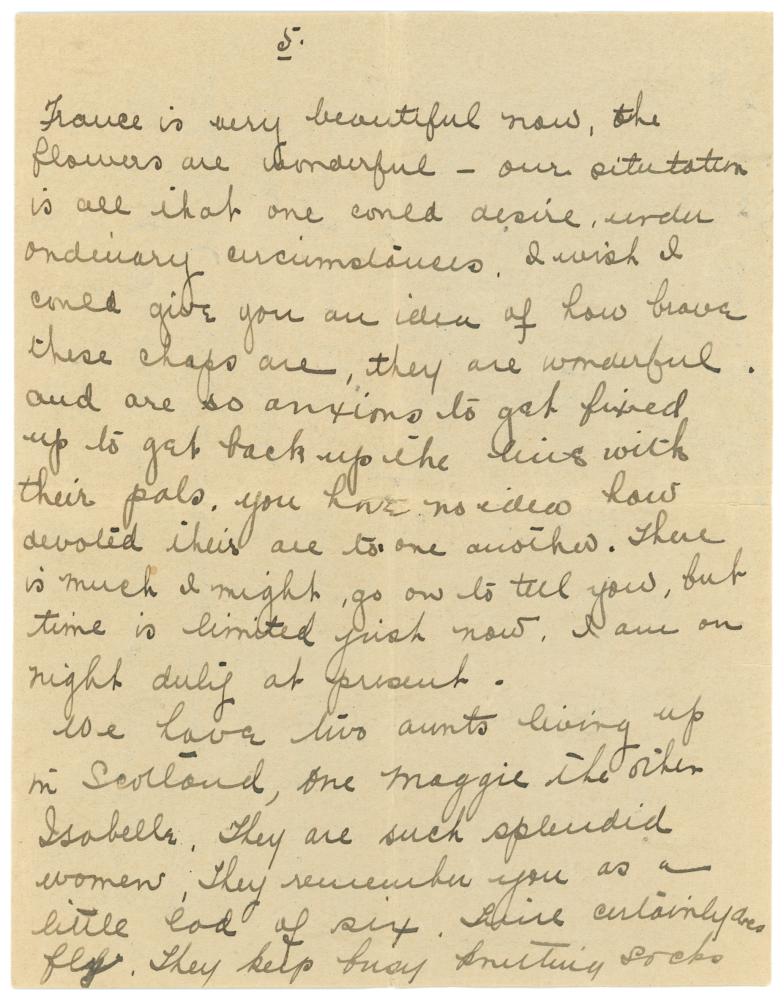 5.
France is very beautiful now, the
flowers are wonderful - our situtation
is all that one could desire, under
ordinary circumstances. I wish I
could give you an idea of how brave
these chaps are, they are wonderful.
and are so anxious to get fixed
up to get back up the line with
their pals. you have no idea how
devoted their are to one another. There
is much I might, go on to tell you, but
time is limited just now. I am on
night duty at present.
We have two aunts living up
in Scotland, one Maggie the other
Isabelle. They are such splendid
women, They remember you as a
little lad of six. Time certainly does
fly. They keep busy knitting socks